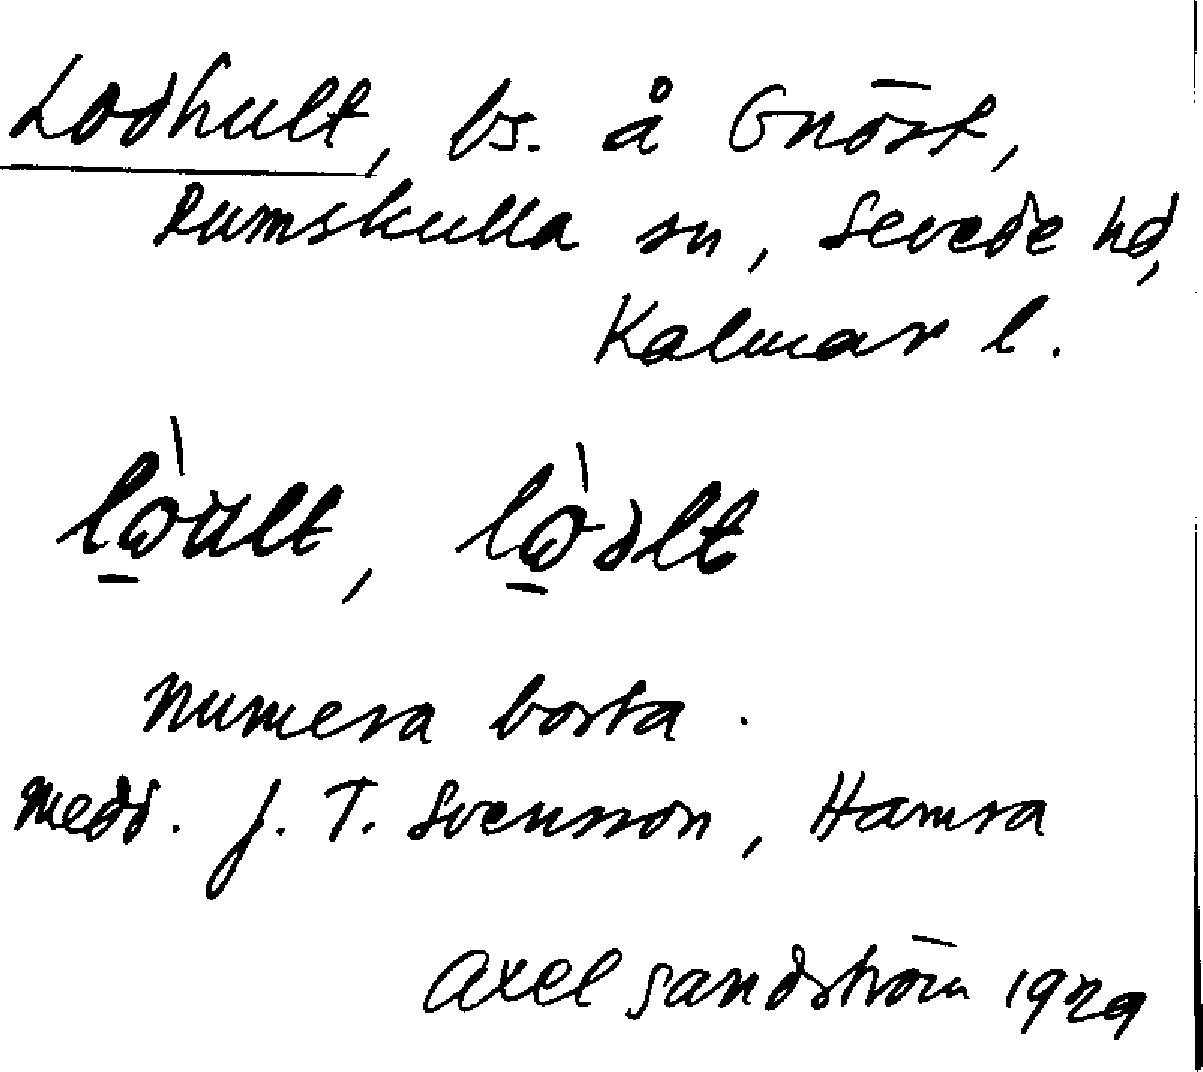 Lodhult, bs. å Gnöst,
Rumskulla sn, Sevede hd,
Kalmar l.
numera borta.
Medd. J. T. Svensson, Hamra
Axel Sandström 1929